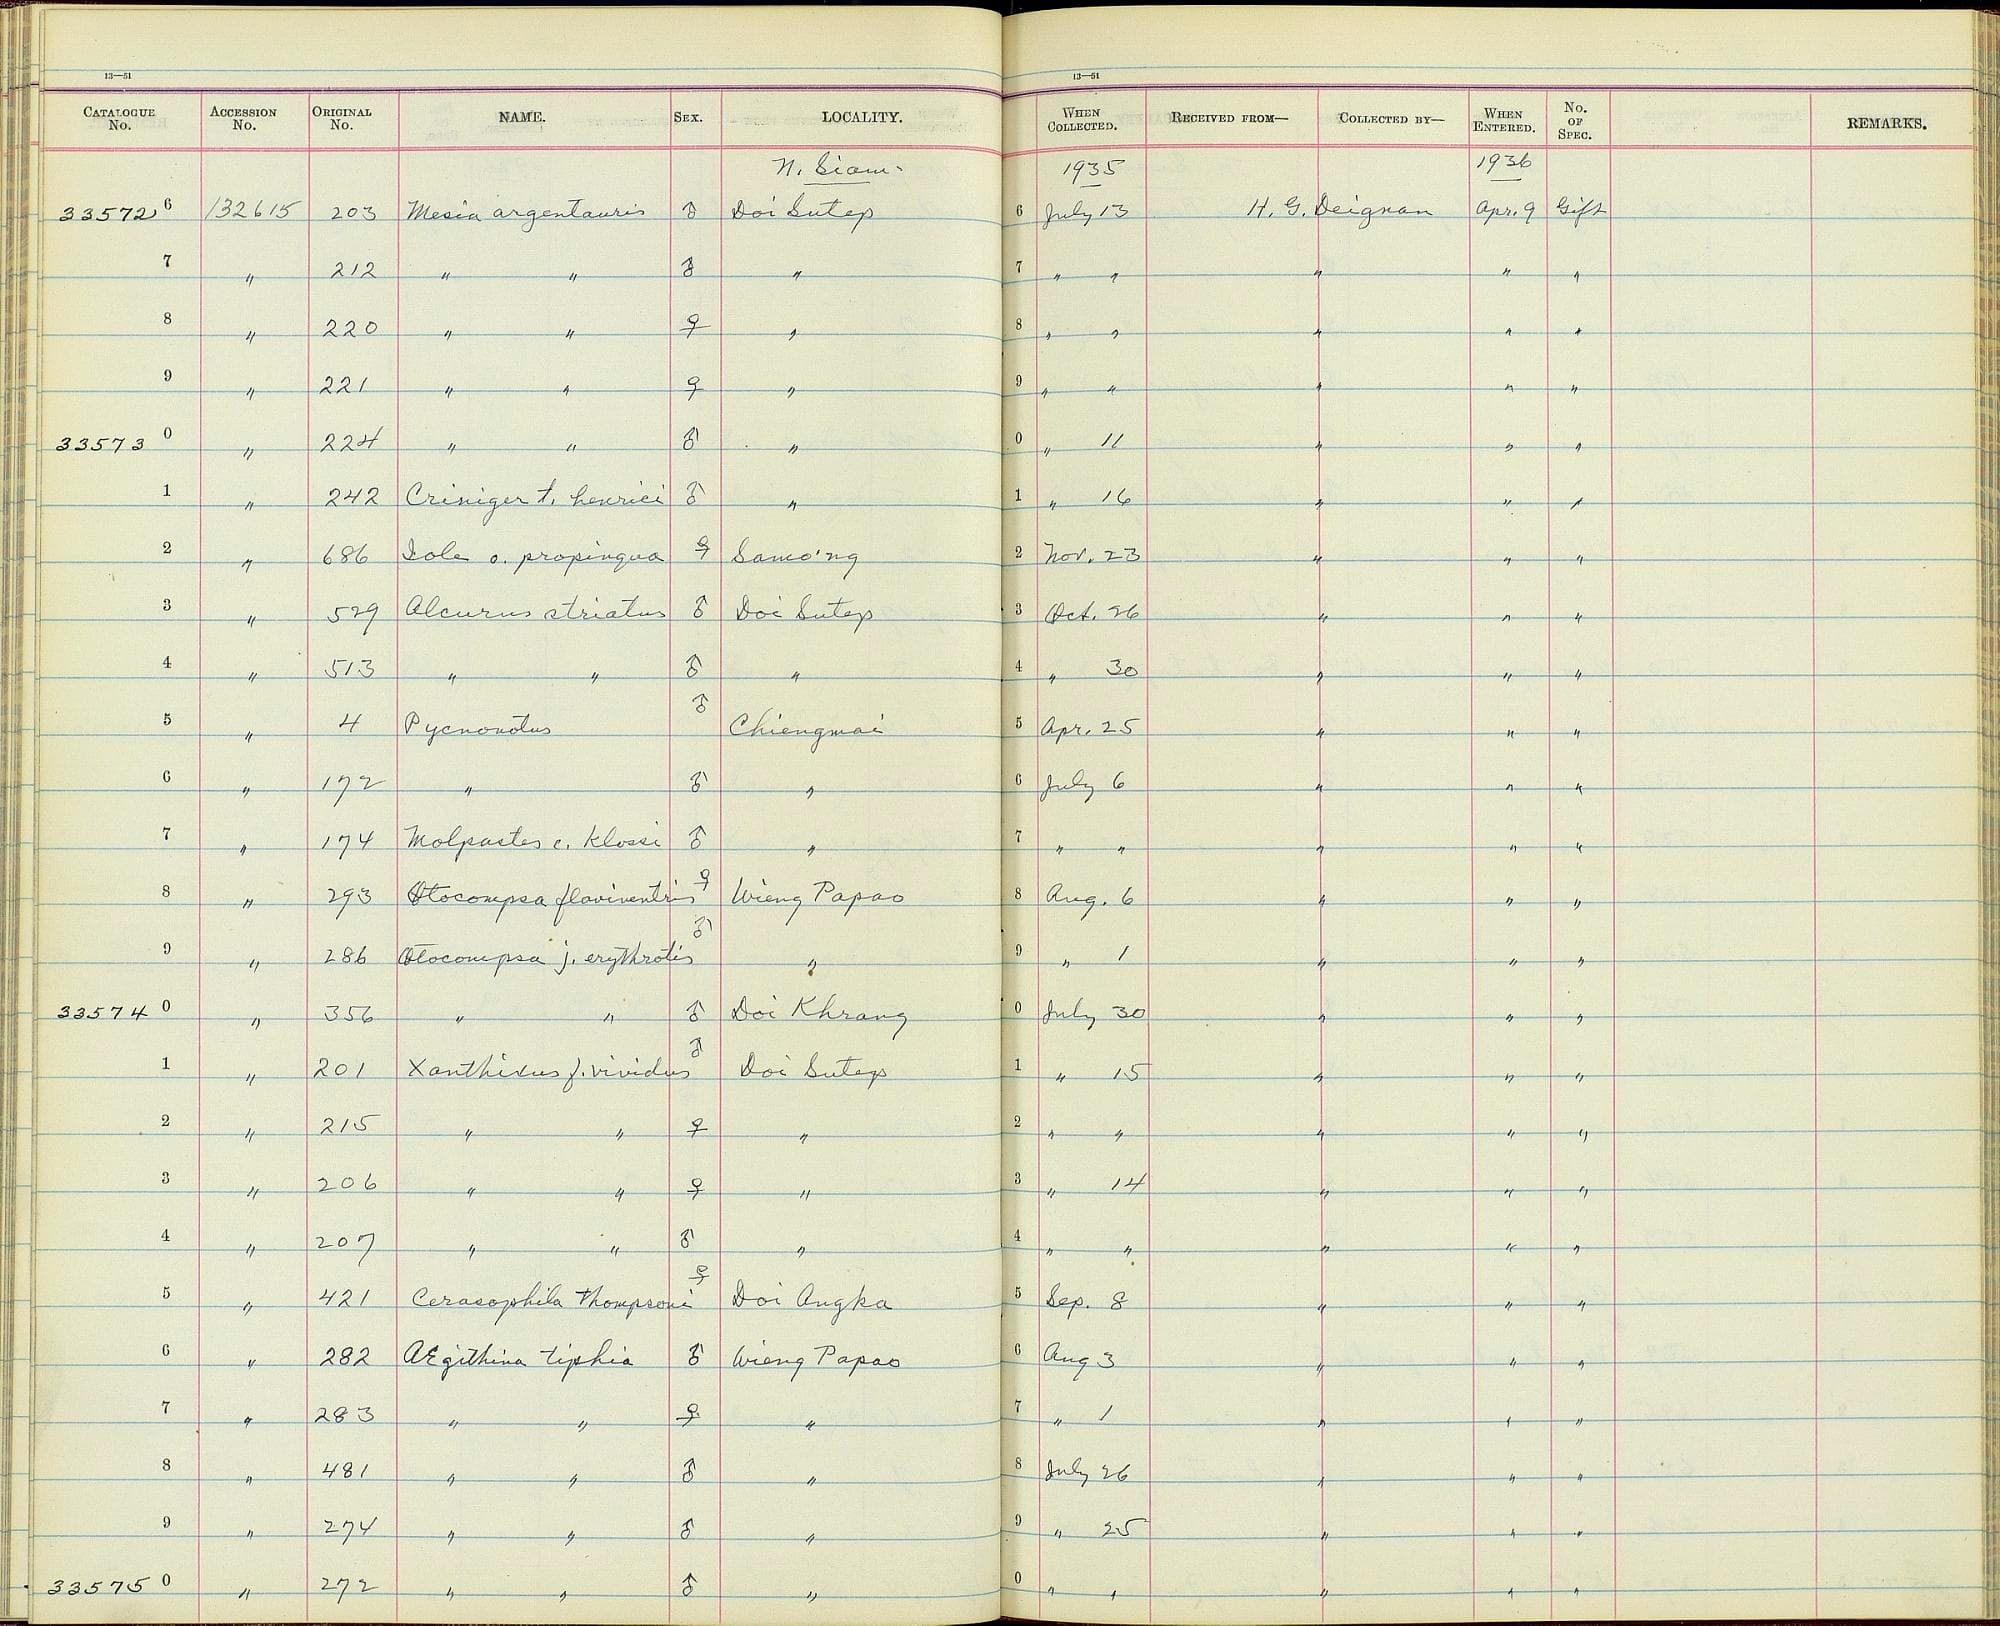 13—51 13—51
CATALOGUE No. ACCESSION No. ORIGINAL No. NAME. SEX. LOCALITY. WHEN COLLECTED. RECEIVED FROM— COLLECTED BY— WHEN ENTERED. No. OF SPEC. REMARKS.
N. Siam. 1935 1936
33572 6 132615 203 Mesia argentauris ♂ Doi Sutep 6 July 13 H. G. Deignan Apr. 9 Gift
7 " 212 " " ♂ " 7 " " " " "
8 " 220 " " ♀ " 8 " " " " "
9 " 221 " " ♀ " 9 " " " " "
33573 0 " 224 " " ♂ " 0 " 11 " " "
1 " 242 Criniger t. henrici ♂ " 1 " 16 " " "
2 " 686 Iole o. propinqua ♀ Samo'ng 2 Nov. 23 " " "
3 " 529 Alcurus striatus ♂ Doi Sutep 3 Oct. 26 " " "
4 " 513 " " ♂ " 4 " 30 " " "
5 " 4 Pycnonotus ♂ Chiengmai 5 Apr. 25 " " "
6 " 172 " ♂ " 6 July 6 " " "
7 " 174 Molpastes c. Klossi ♂ " 7 " " " " "
8 " 293 Otocompsa flaviventris ♀ Wieng Papao 8 Aug. 6 " " "
9 " 286 Otocompsa j. erythrotis ♂ " 9 " 1 " " "
33574 0 " 356 " " ♂ Doi Khrang 0 July 30 " " "
1 " 201 Xanthixus f. vividus ♂ Doi Sutep 1 " 15 " " "
2 " 215 " " ♀ " 2 " " " " "
3 " 206 " " ♀ " 3 " 14 " " "
4 " 207 " " ♂ " 4 " " " " "
5 " 421 Cerasophila Thompsoni ♀ Doi Angka 5 Sep. 8 " " "
6 " 282 Ægithina tiphia ♂ Wieng Papao 6 Aug 3 " " "
7 " 283 " " ♀ " 7 " 1 " " "
8 " 481 " " ♂ " 8 July 26 " " "
9 " 274 " " ♂ " 9 " 25 " " "
33575 0 " 272 " " ♂ " 0 " " " " "